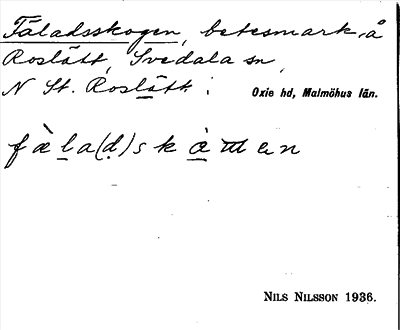 Fäladsskogen, betesmark, å
Roslätt, Svedala sn,
N St. Roslätt.
Oxie hd, Malmöhus län.
NILS NILSSON 1936.